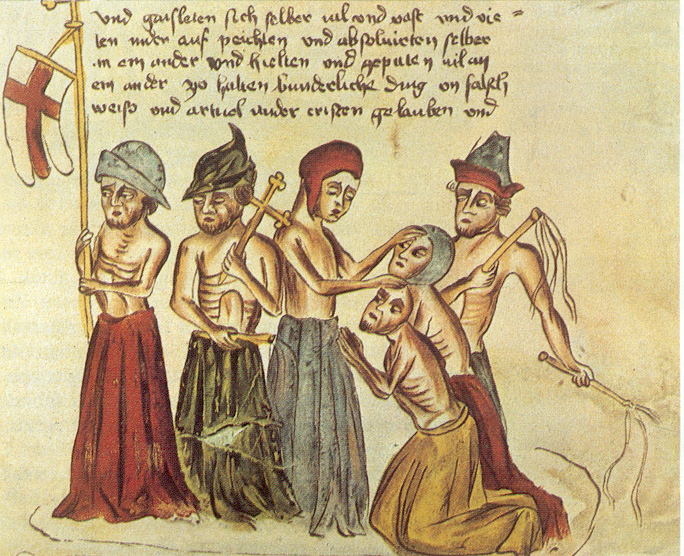 und gaisleten sich selber vil vnd vast vnd vie =
ten nider auf peichten vnd absolvirten selber
an ein ander vnd hielten vnd geputen vil an
ein ander yo hatten bunderliche ding on falsch
weiss vnd artical vnder cristen gelauben vnd